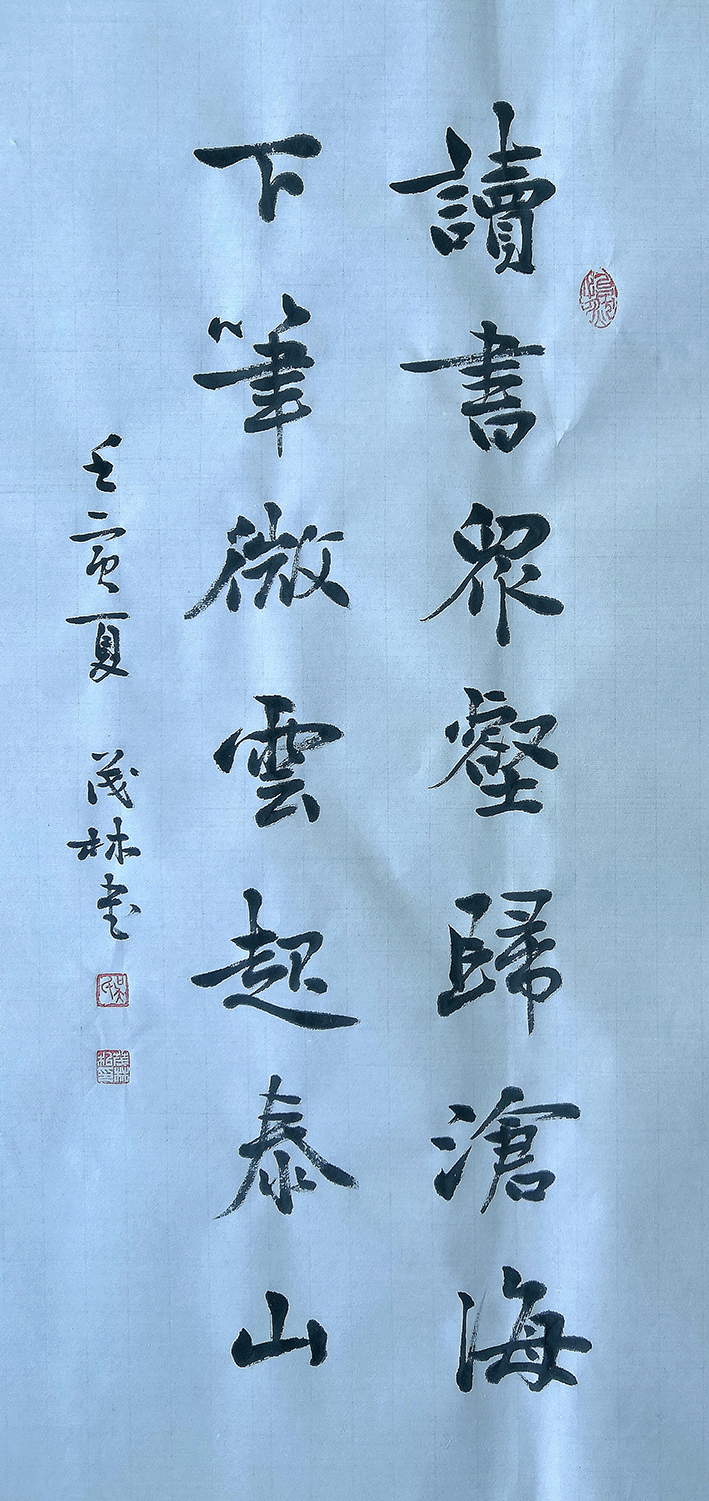 讀書衆壑歸滄海
下筆微雲起泰山
壬寅夏 茂林書